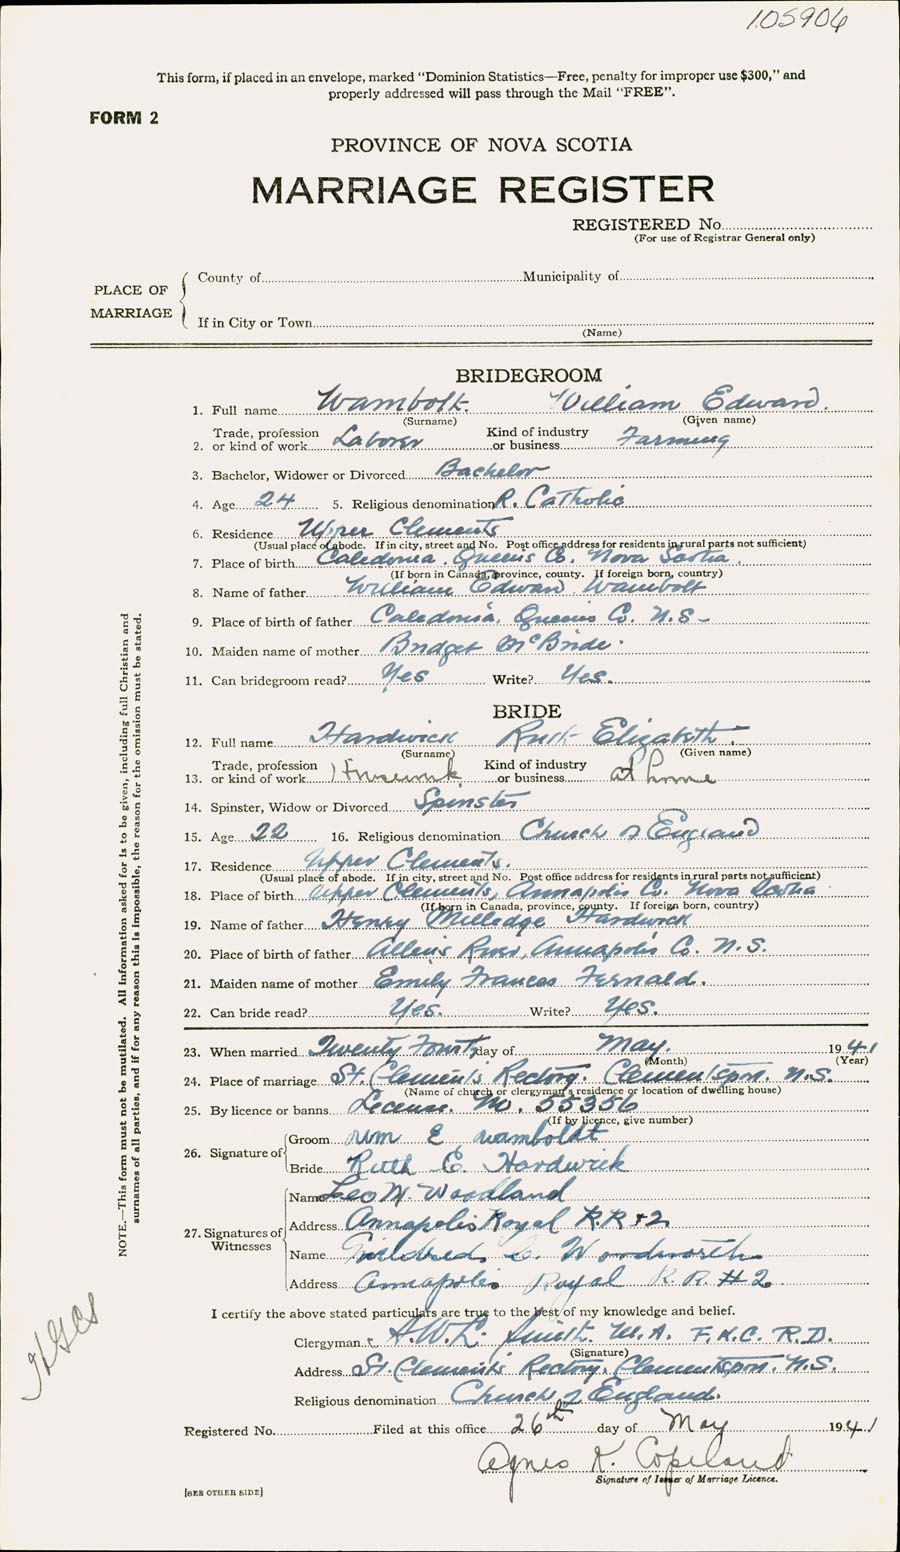 105906
This form, if placed in an envelope, marked "Dominion Statistics—Free, penalty for improper use $300," and
properly addressed will pass through the Mail "FREE".
FORM 2
PROVINCE OF NOVA SCOTIA
MARRIAGE REGISTER
REGISTERED No.
(For use of Registrar General only)
PLACE OF MARRIAGE
County of Municipality of
If in City or Town
(Name)
BRIDEGROOM
1. Full name Wambolt. William Edward.
(Surname) (Given name)
2. Trade, profession or kind of work Laborer Kind of industry or business Farming
3. Bachelor, Widower or Divorced Bachelor
4. Age 24 5. Religious denomination R. Catholic
6. Residence Upper Clements
(Usual place of abode. If in city, street and No. Post office address for residents in rural parts not sufficient)
7. Place of birth Caledonia. Queens Co. Nova Scotia.
(If born in Canada, province, county. If foreign born, country)
8. Name of father William Edward Wambolt
9. Place of birth of father Caledonia. Queens Co. N.S.
10. Maiden name of mother Bridget McBride.
11. Can bridegroom read? Yes Write? Yes.
BRIDE
12. Full name Hardwick Ruth Elizabeth.
(Surname) (Given name)
13. Trade, profession or kind of work Housework Kind of industry or business at home
14. Spinster, Widow or Divorced Spinster
15. Age 22 16. Religious denomination Church of England
17. Residence Upper Clements.
(Usual place of abode. If in city, street and No. Post office address for residents in rural parts not sufficient)
18. Place of birth Upper Clements, Annapolis Co. Nova Scotia
(If born in Canada, province, county. If foreign born, country)
19. Name of father Henry Milledge Hardwick
20. Place of birth of father Allen's River, Annapolis Co. N.S.
21. Maiden name of mother Emily Frances Fernald.
22. Can bride read? Yes. Write? Yes.
23. When married Twenty Fourth day of May. 1941
(Month) (Year)
24. Place of marriage St. Clements Rectory. Clementsport. N.S.
(Name of church or clergyman's residence or location of dwelling house)
25. By licence or banns License. No. 55356
(If by licence, give number)
26. Signature of
Groom Wm E Wamboldt
Bride Ruth E. Hardwick
27. Signatures of Witnesses
Name Leo M. Woodland
Address Annapolis Royal R.R #2
Name Mildred Woodworth
Address Annapolis Royal R.R. #2
I certify the above stated particulars are true to the best of my knowledge and belief.
Clergyman A.W.L. Smith. M.A. F.H.C. R.D.
(Signature)
Address St. Clements Rectory. Clementsport. N.S.
Religious denomination Church of England.
Registered No. Filed at this office 26th day of May 1941
Agnes K. Copeland
Signature of Issuer of Marriage Licence.
[SEE OTHER SIDE]
NOTE.—This form must not be mutilated. All information asked for is to be given, including full Christian and
surnames of all parties, and if for any reason this is impossible, the reason for the omission must be stated.